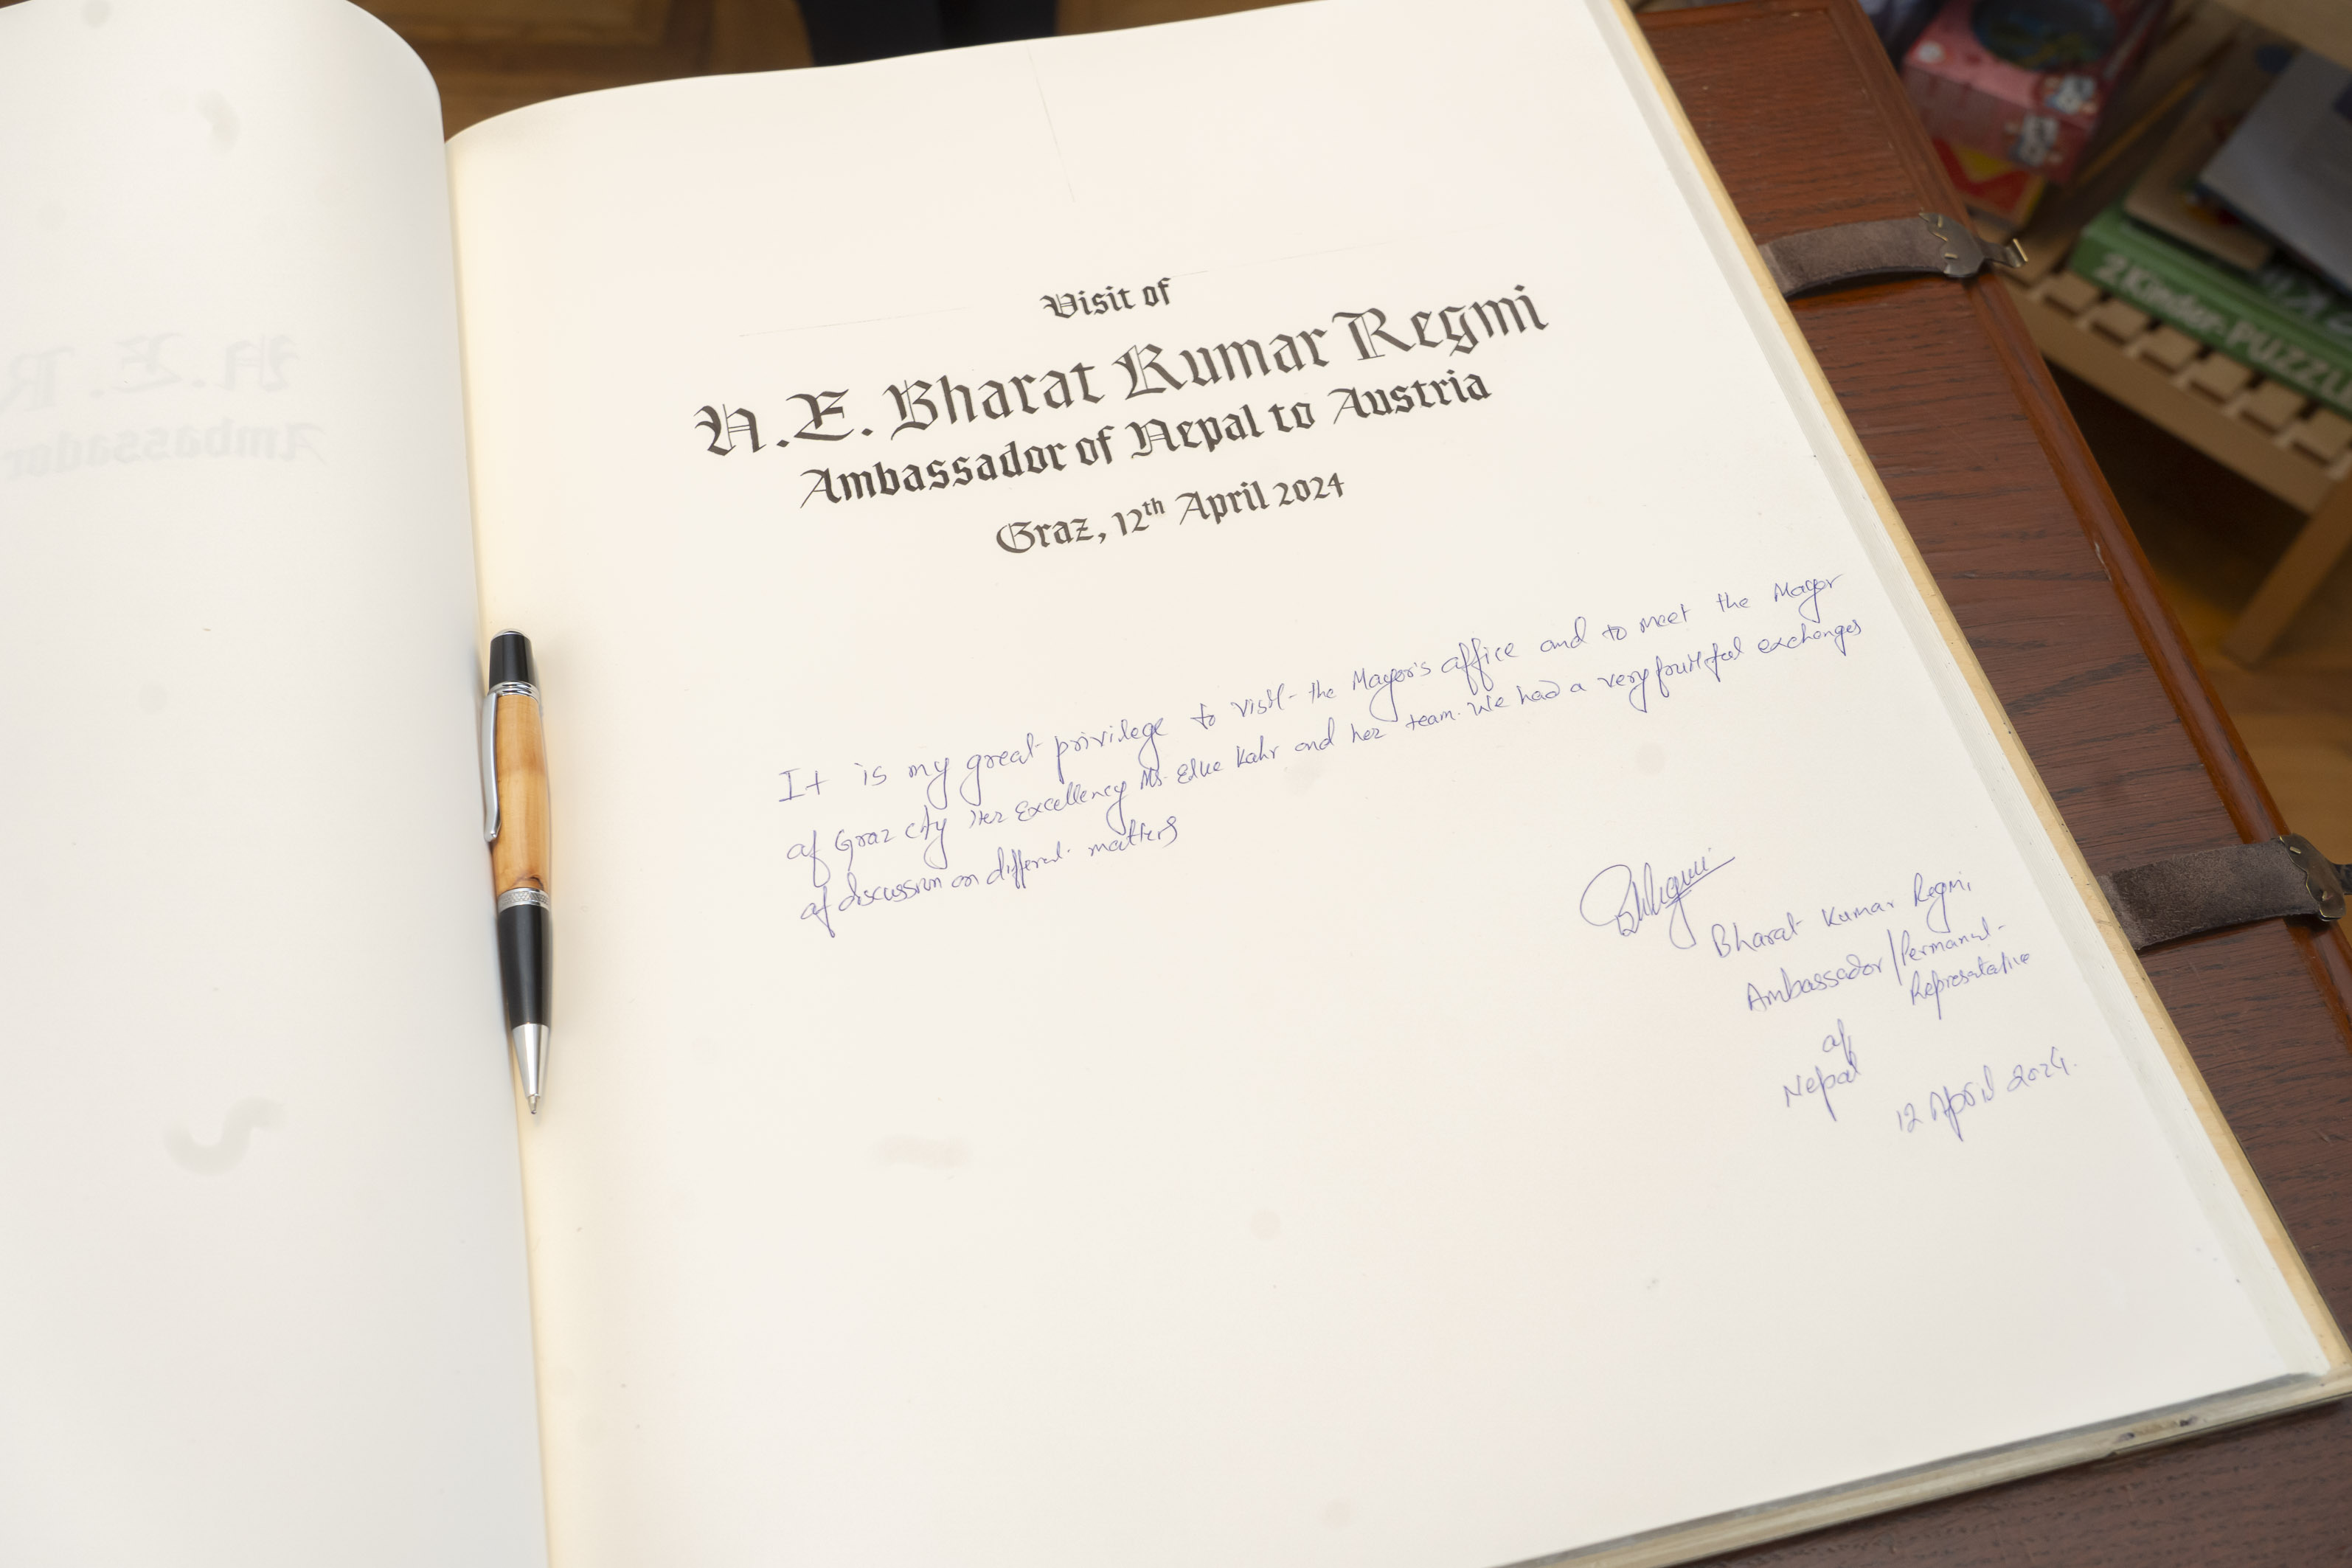 Visit of
H.E. Bharat Kumar Regmi
Ambassador of Nepal to Austria
Graz, 12th April 2024
It is my great privilege to visit the Mayor's office and to meet the Mayor
of Graz city Her Excellency Ms. Elke Kahr and her team. We had a very fruitful exchanges
of discussion on different matters
Bharat Kumar Regmi,
Ambassador/Permanent
Representative
of
Nepal
12 April 2024.
2 Kinder-PUZZL
H.E. R
Ambassador